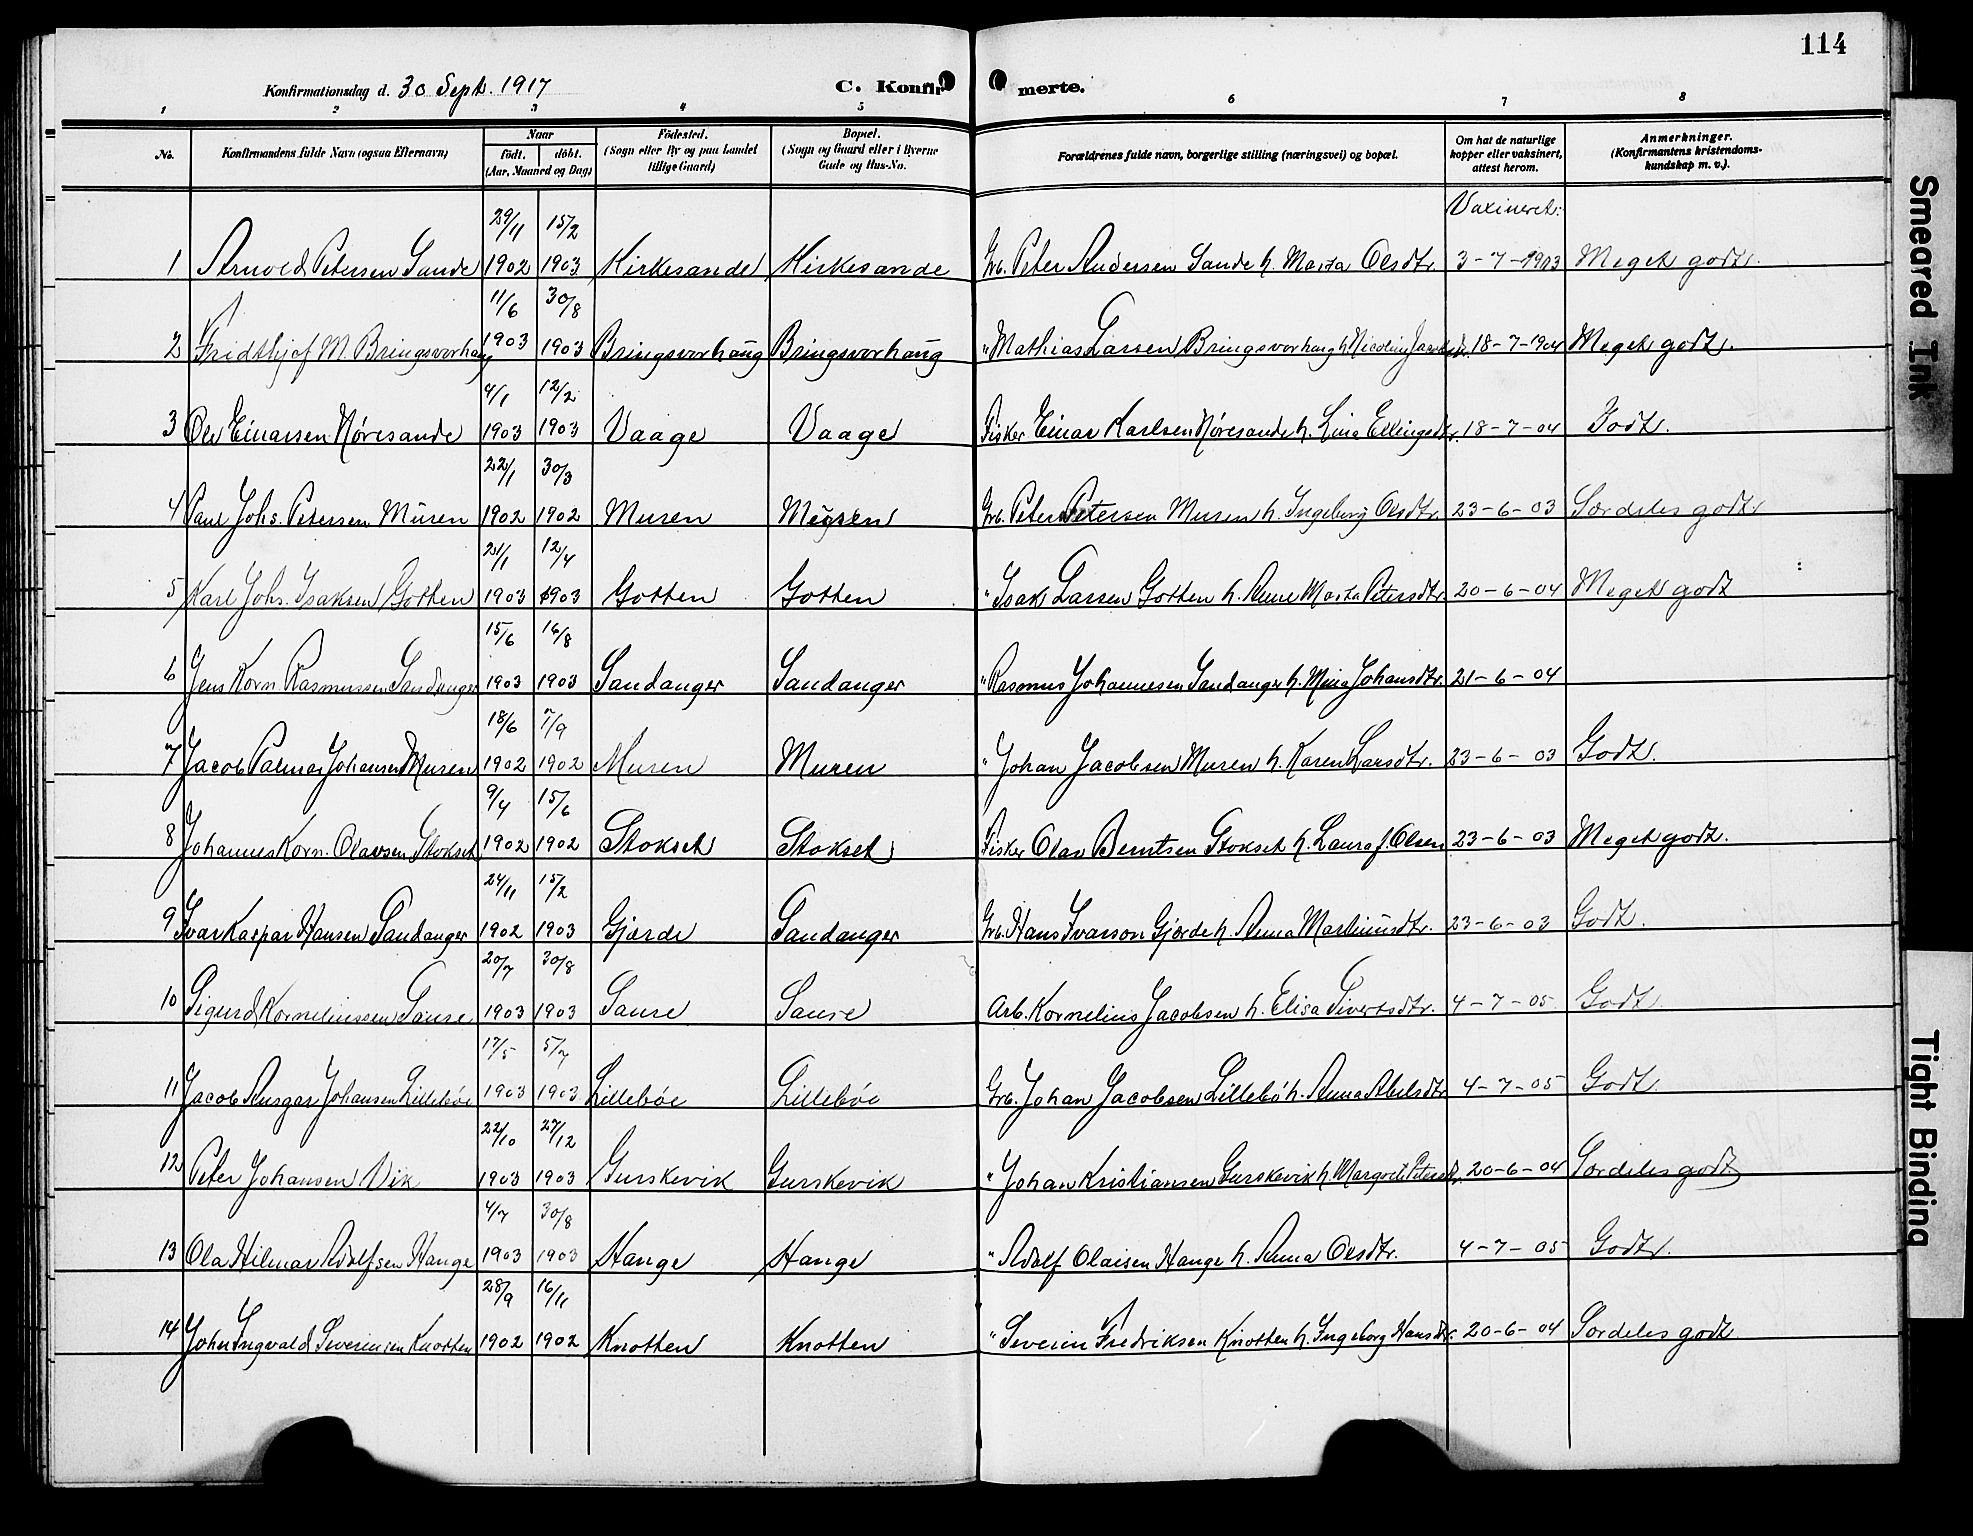 114
Konfirmationsdag d. 30 Sept. 1917
C. Konfir merte.
1 2 3 4 5 6 7 8
No.
Konfirmandens fulde Navn (ogsaa Efternavn)
Naar
født. døbt.
(Aar, Maaned og Dag)
Fødested.
(Sogn eller By og paa Landet
tillige Gaard)
Bopæl.
(Sogn og Gaard eller i Byerne
Gade og Hus-No.
Forældrenes fulde navn, borgerlige stilling (næringsvei) og bopæl.
Om hat de naturlige
kopper eller vaksinert,
attest herom.
Anmerkninger.
(Konfirmantens kristendoms-
kundskap m. v.).
Vaxineret:
29/11 15/2
1 Arnold Petersen Sande 1902 1903 Kirkesande Kirkesande Grb. Peter Andersen Sande h. Marta Olsdtr. 3-7-1903 Meget godt.
11/6 30/8
2 Fridthjof M. Bringsvorhaug 1903 1903 Bringsvorhaug Bringsvorhaug " Mathias Larsen Bringsvorhaug h. Nicoline 18-7-1904 Meget godt.
4/1 12/2
3 Ole Einarsen Nøresande 1903 1903 Vaage Vaage Fisker Einar Karlsen Nøresande h. Lina Ellingsdtr. 18-7-04 Godt.
22/1 30/3
4 Paul Johs. Petersen Muren 1902 1902 Muren Muren Grb. Peter Petersen Muren h. Ingeborg Olsdtr. 23-6-03 Særdeles godt.
21/1 12/4
5 Karl Johs. Isaksen Gotten 1903 1903 Gotten Gotten " Isak Larsen Gotten h. Anne Marta Petersdtr. 20-6-04 Meget godt
15/6 16/8
6 Jens Korn. Rasmussen Sandanger 1903 1903 Sandanger Sandanger " Rasmus Johannesen Sandanger h. Mina Johansdtr. 21-6-04
18/6 7/9
7 Jacob Palmar Johansen Muren 1902 1902 Muren Muren " Johan Jacobsen Muren h. Karen Larsdtr. 23-6-03 Godt.
9/4 15/6
8 Johannes Korn. Olavsen Stokset 1902 1902 Stokset Stokset Fisker Olav Berntsen Stokset h. Laura J. Olsen 23-6-03 Meget godt.
24/11 15/2
9 Ivar Kaspar Hansen Sandanger 1902 1903 Gjærde Sandanger Grb. Hans Ivarson Gjærde h. Anna Martinusdtr. 23-6-03 Godt.
20/7 30/8
10 Sigurd Korneliussen Saure 1903 1903 Saure Saure Arb. Kornelius Jacobsen h. Elisa Sivertsdtr. 4-7-05 Godt.
17/5 5/7
11 Jacob Ansgar Johansen Lillebøe 1903 1903 Lillebøe Lillebøe Grb. Johan Jacobsen Lillebø h. Anna Abelsdtr 4-7-05 Godt.
22/10 27/12
12 Peter Johansen Vik 1903 1903 Gurskevik Gurskevik " Johan Kristiansen Gurskevik h. Margrete Petersdtr. 20-6-04 Særdeles godt
4/7 30/8
13 Ola Hilmar Adolfsen Hauge 1903 1903 Hauge Hauge " Adolf Olaisen Hauge h. Anna Olsdtr. 4-7-05 Godt.
28/9 16/11
14 John Ingvald Severinsen Knotten 1902 1902 Knotten Knotten " Severin Fredriksen Knotten h. Ingeborg Hansdtr. 20-6-04 Særdeles godt
Smeared Ink
Tight Binding